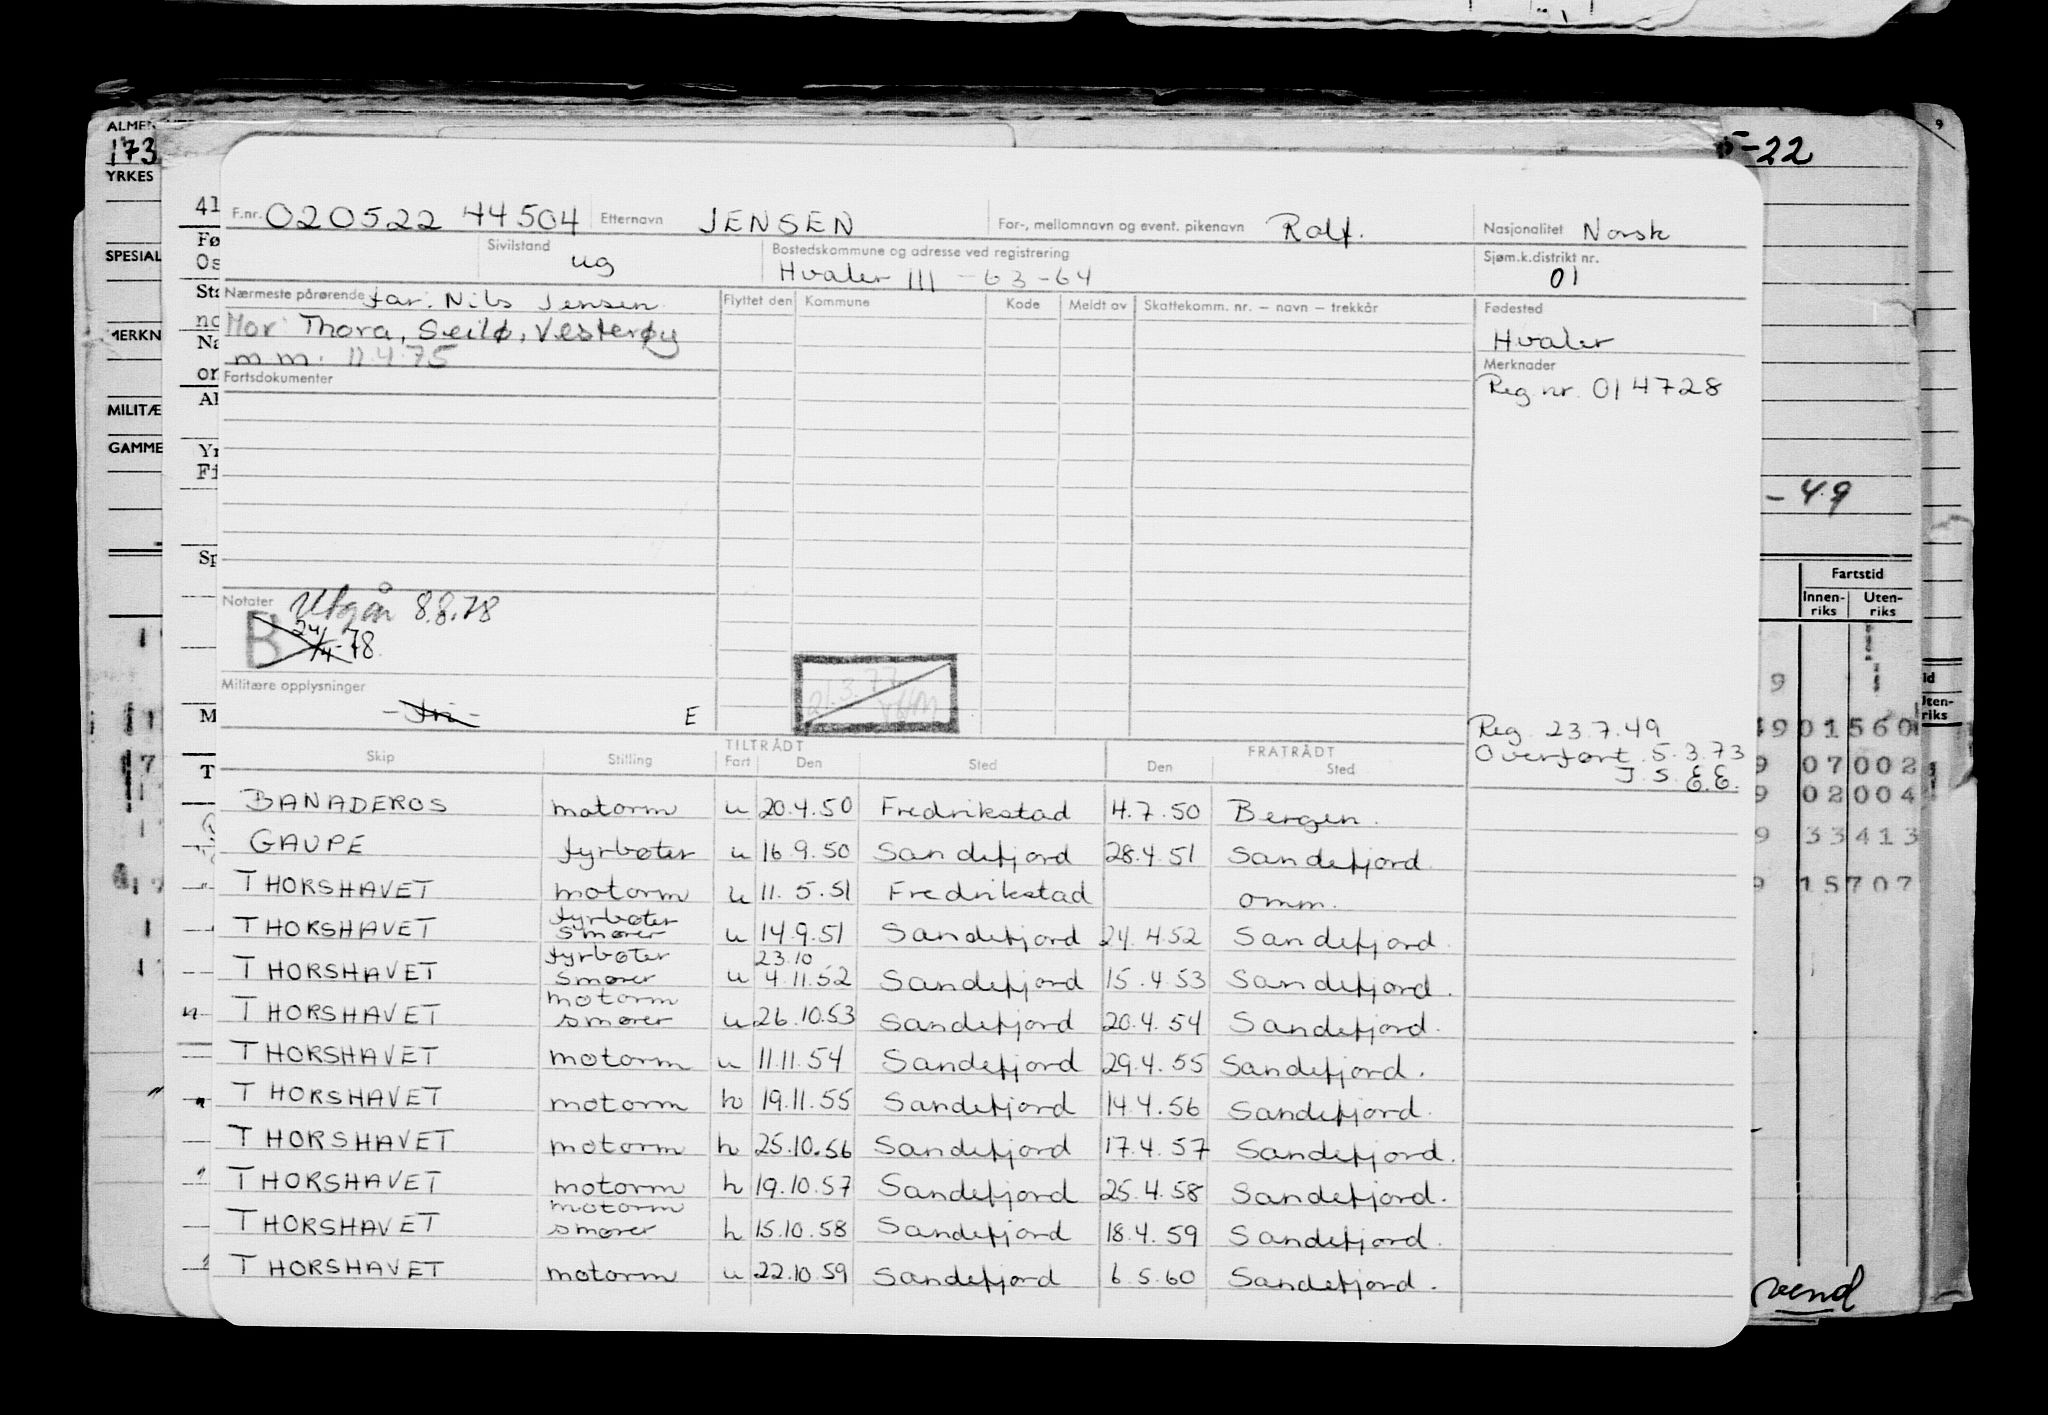 ALMEN
173
YRKES
SPECIAL
MERKN
MILITÆ
GAMME
5-22
9
41
Fø
Os
Sta
no
Na
or
Al
Yr
Fi
Sp
M
T
F.nr. 020522 44504 Etternavn JENSEN For-, mellomnavn og event. pikenavn Rolf. Nasjonalitet Norsk
Sivilstand ug Bostedskommune og adresse ved registrering Hvaler III - 63-64 Sjøm.k.distrikt nr. 01
Nærmeste pårørende far: Nils Jensen Flyttet den Kommune Kode Meldt av Skattekomm. nr. – navn – trekkår Fødested
Mor: Thora, Seilø, Vesterøy Hvaler
m.m. 11.4.75 Merknader
Fartsdokumenter Reg nr. 014728
Notater Utgår 8.8.78
B 24/4-78
21.3.77
Militære opplysninger
E
Reg. 23.7.49
Overført 5.3.73
J.S. E.E.
TILTRÅDT FRATRÅDT
Skip Stilling Fart Den Sted Den Sted
BANADEROS motorm u 20.4.50 Fredrikstad 4.7.50 Bergen.
GAUPE fyrbøter u 16.9.50 Sandefjord 28.4.51 Sandefjord.
THORSHAVET motorm u 11.5.51 Fredrikstad omm.
fyrbøter
THORSHAVET smører u 14.9.51 Sandefjord 24.4.52 Sandefjord.
fyrbøter 23.10
THORSHAVET smører u 4.11.52 Sandefjord 15.4.53 Sandefjord.
motorm
THORSHAVET smører u 26.10.53 Sandefjord 20.4.54 Sandefjord.
THORSHAVET motorm u 11.11.54 Sandefjord 29.4.55 Sandefjord.
THORSHAVET motorm h 19.11.55 Sandefjord 14.4.56 Sandefjord.
THORSHAVET motorm h 25.10.56 Sandefjord 17.4.57 Sandefjord.
THORSHAVET motorm h 19.10.57 Sandefjord 25.4.58 Sandefjord.
motorm
THORSHAVET smører h 15.10.58 Sandefjord 18.4.59 Sandefjord.
THORSHAVET motorm u 22.10.59 Sandefjord 6.5.60 Sandefjord.
- 49
Fartstid
Innen-riks Uten-riks
9
49 01 560
9 07 002
9 02 004
9 33 413
9 15 707
vend